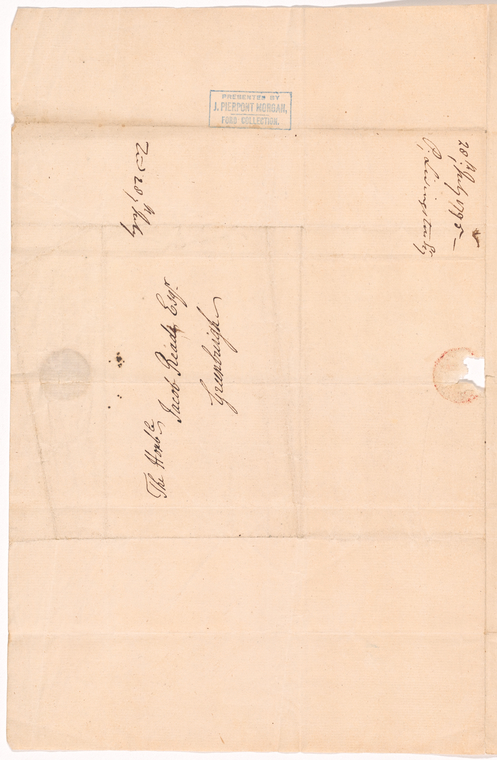 PRESENTED BY
J. PIERPONT MORGAN,
FORD COLLECTION.
28th July 1795 —
P. Livingston
28th July
The Honble
Jacob Read Esqr
Greenburgh